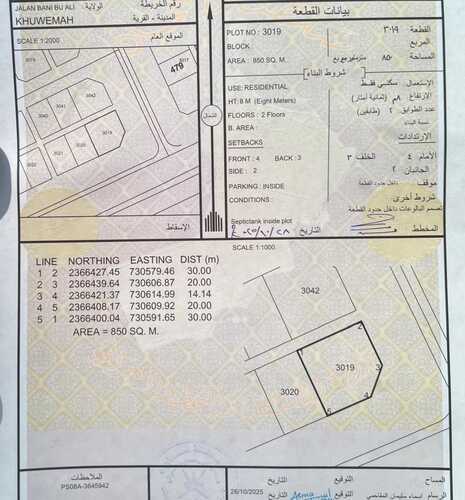 JALAN BANI BU ALI
الولاية
رقم الخريطة
KHUWEMAH
المدينة - القرية
بيانات القطعة
SCALE 1:2000
الموقع العام
3017
479
3042
3041
3040
3019
3020
3021
3022
الشمال
الإسقاط
PLOT NO : 3019
القطعة ٣٠١٩
BLOCK :
المربع
AREA : 850 SQ. M.
المساحة ٨٥٠ مترمربع
شروط البناء
USE: RESIDENTIAL
الإستعمال: سكني فقط
HT: 8 M (Eight Meters)
الارتفاع ٨م (ثمانية أمتار)
FLOORS : 2 Floors
عدد الطوابق ٢ (طابقين)
B. AREA :
نسبة البناء
SETBACKS
الإرتدادات
FRONT : 4 BACK : 3
الأمام ٤ الخلف ٣
SIDE : 2
الجانبان ٢
PARKING : INSIDE
موقف داخل حدود القطعة
CONDITIONS :
شروط أخرى
تصمم البالوعات داخل حدود القطعة
Septictank inside plot
التاريخ
المخطط
SCALE 1:1000
LINE NORTHING EASTING DIST (m)
1 2 2366427.45 730579.46 30.00
2 3 2366439.64 730606.87 20.00
3 4 2366421.37 730614.99 14.14
4 5 2366408.17 730609.92 20.00
5 1 2366400.04 730591.65 30.00
AREA = 850 SQ. M.
3042
1
2
3019
3
3020
4
5
الملاحظات
PS08A-3645942
التاريخ
التوقيع
المساح
26/10/2025
التاريخ
التوقيع
الرسام
اسماء سليمان